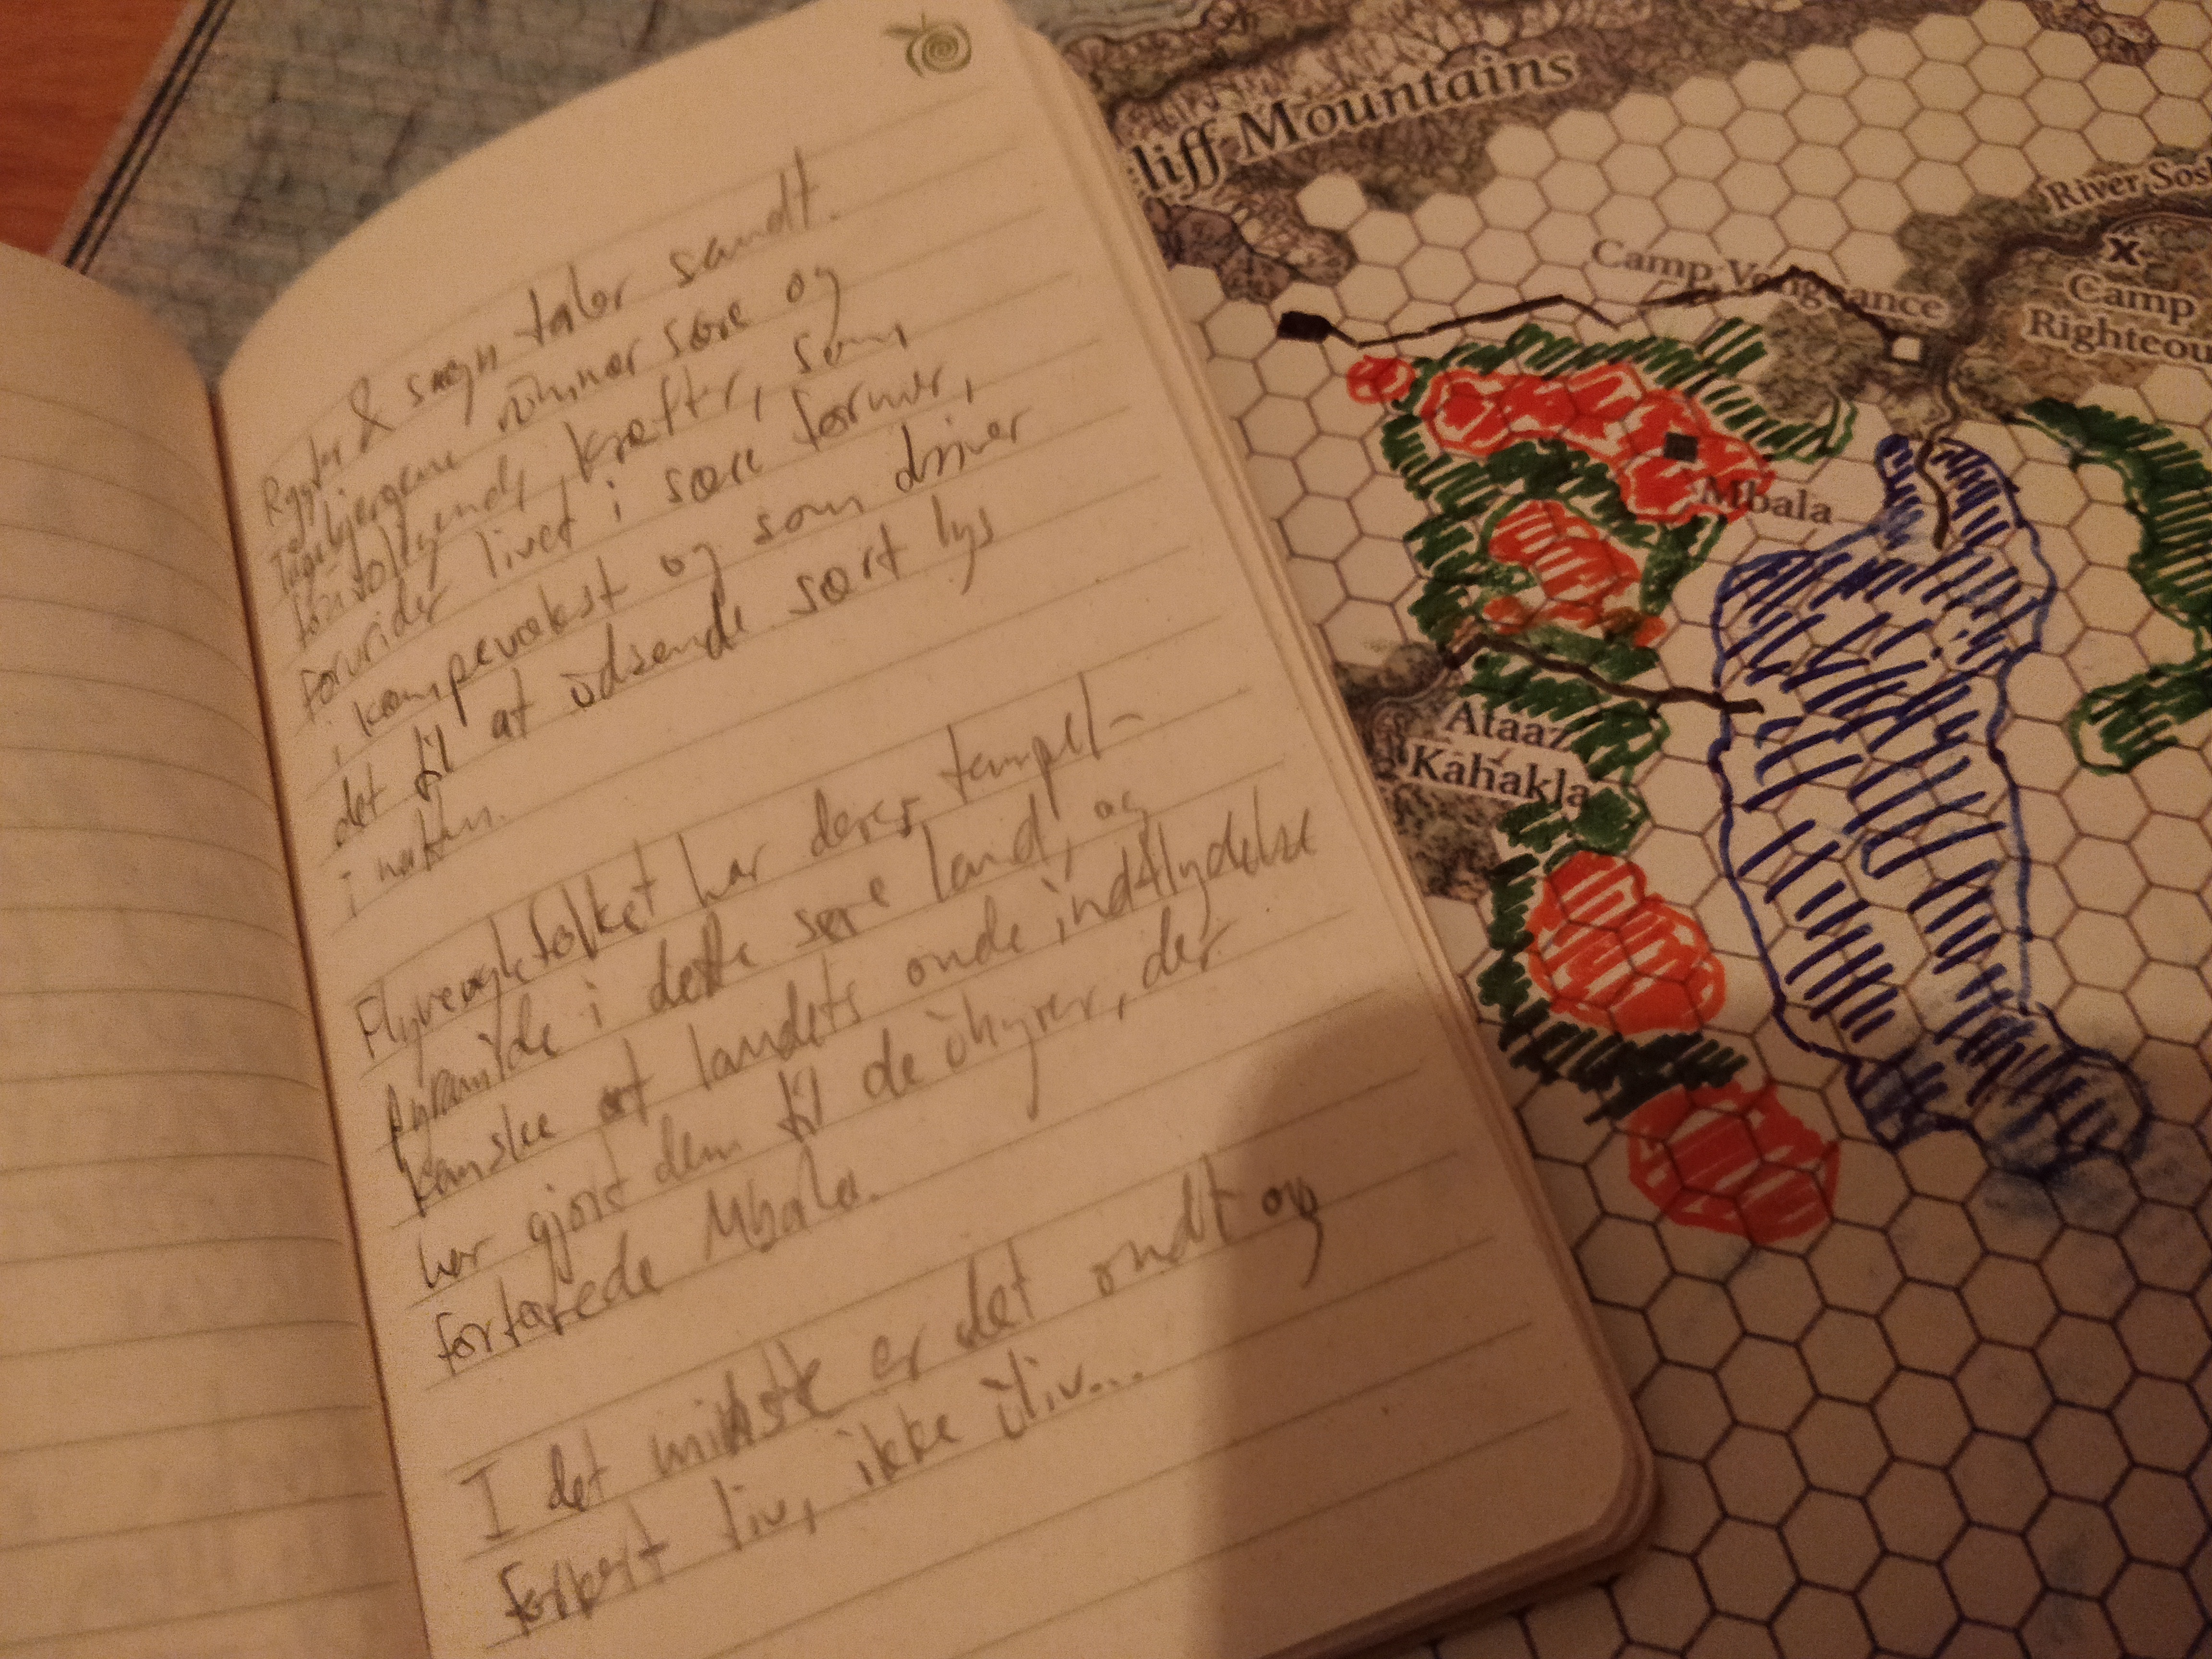 Rygter & sagn taler sandt.
Tågebjergene rummer sære og
foruroligende kræfter, som
forvrider livet i sære former,
i kæmpevækst og som driver
det til at udsende sort lys
i natten.
Flyveøglefolket har deres tempel-
pyramide i dette sære land, og
kanske at landets onde indflydelse
har gjort dem til de uhyrer, der
fortærede Mbala.
I det mindste er det ondt og
forkert liv, ikke uliv...
liff Mountains
River Sosh
Camp Vengeance
Camp
Righteou
Mbala
Ataaz
Kahakla